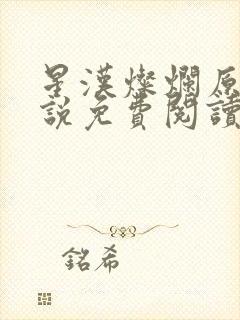 星漢燦爛原
說免費閱讀
銘希